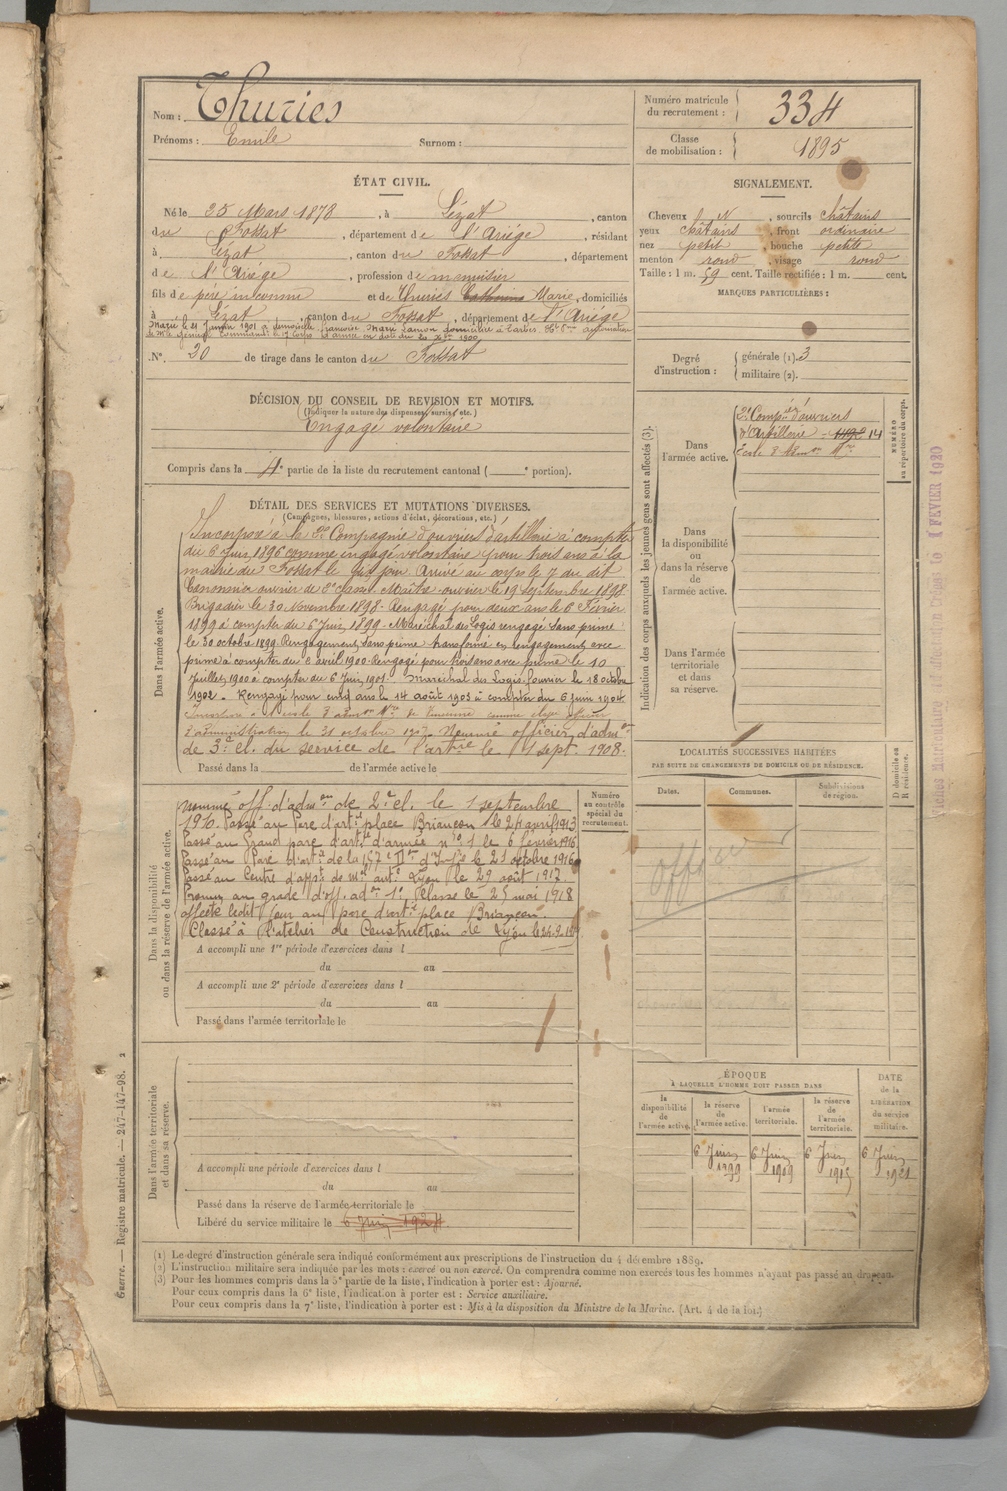 Nom : Thuries
Prénoms : Emile Surnom :
Numéro matricule du recrutement : 334
Classe de mobilisation : 1895
ÉTAT CIVIL.
Né le 25 Mars 1878, à Lézat, canton
du Fossat, département de l'Ariége, résidant
à Lézat, canton du Fossat, département
de l'Ariége, profession de menuisier
fils de père inconnu et de Thuriés Marie, domiciliés
à Lézat, canton du Fossat, département de l'Ariége
Marié le 21 Janvier 1901 à demoiselle Françoise Marie domiciliée à Tarbes
N° 20 de tirage dans le canton du Fossat
SIGNALEMENT.
Cheveux N, sourcils châtains
yeux châtains, front ordinaire
nez petit, bouche petite
menton rond, visage rond
Taille : 1 m. 59 cent. Taille rectifiée : 1 m. cent.
MARQUES PARTICULIÈRES :
Degré d'instruction : générale (1). 3
militaire (2).
DÉCISION DU CONSEIL DE REVISION ET MOTIFS.
(Indiquer la nature des dispenses, sursis, etc.)
Engagé volontaire
Compris dans la 4e partie de la liste du recrutement cantonal ( e portion).
DÉTAIL DES SERVICES ET MUTATIONS DIVERSES.
(Campagnes, blessures, actions d'éclat, décorations, etc.)
Dans l'armée active.
Incorporé à la 2e Compagnie d'ouvriers d'artillerie à compter
du 6 Juin 1896 comme engagé volontaire pour trois ans à la
mairie du Fossat le dit jour. Arrivé au corps le 7 du dit
Canonnier ouvrier de 2e classe. Maître ouvrier le 19 septembre 1898.
Brigadier le 30 Novembre 1898. Rengagé pour deux ans le 6 Février
1899 à compter du 6 Juin 1899. Maréchal des Logis rengagé sans prime
le 30 octobre 1899. Rengagement sans prime transformé en rengagement avec
prime à compter du avril 1900. Rengagé pour trois ans avec prime le 10
Juillet 1900 à compter du 6 Juin 1901. Maréchal des Logis fourrier le 18 octobre
1902. Rengagé pour cinq ans le 14 août 1903 à compter du 6 Juin 1904.
d'administration le 31 octobre 1907. Nommé officier d'admon
de 3e cl. du service de l'artrie le 1 sept. 1908.
Passé dans la de l'armée active le
Dans la disponibilité ou dans la réserve de l'armée active.
nommé off. d'admon de 2e cl. le 1 septembre
1910. Passé au Parc d'artie place Briançon le 24 avril 1913
Passé au Grand parc d'artie d'armée n° 1 le 6 février 1916
Passé au Parc d'artie de la 157e Don d'Infie le 21 octobre 1916
Passé au Centre d'appt de mel auto Lyon le 29 août 1917.
Promu au grade d'off. admon 1e Classe le 25 mai 1918
affecté ledit jour au parc d'artie place Briançon.
Classé à l'atelier de Construction de Lyon le 24.2.19
A accompli une 1re période d'exercices dans l
du au
A accompli une 2e période d'exercices dans l
du au
Passé dans l'armée territoriale le
Numéro au contrôle spécial du recrutement.
Dans l'armée territoriale et dans sa réserve.
A accompli une période d'exercices dans l
du au
Passé dans la réserve de l'armée territoriale le
Libéré du service militaire le 6 Juin 1921
Indication des corps auxquels les jeunes gens sont affectés (3).
Dans l'armée active.
2e Compie d'ouvriers
d'Artillerie 14
Ecole d'Admon Mre
NUMÉRO au répertoire du corps.
Dans la disponibilité ou dans la réserve de l'armée active.
Dans l'armée territoriale et dans sa réserve.
LOCALITÉS SUCCESSIVES HABITÉES
PAR SUITE DE CHANGEMENTS DE DOMICILE OU DE RÉSIDENCE.
Dates. Communes. Subdivisions de région. D domicile ou R résidence.
officier
ÉPOQUE
À LAQUELLE L'HOMME DOIT PASSER DANS
la disponibilité de l'armée active.
la réserve de l'armée active.
l'armée territoriale.
la réserve de l'armée territoriale.
DATE de la LIBÉRATION du service militaire.
6 Juin 1899
6 Juin 1909
6 Juin 1915
6 Juin 1921
1 FEVRIER 1920
Guerre. — Registre matricule. — 247-147-98. 2
(1) Le degré d'instruction générale sera indiqué conformément aux prescriptions de l'instruction du 4 décembre 1889.
(2) L'instruction militaire sera indiquée par les mots : exercé ou non exercé. On comprendra comme non exercés tous les hommes n'ayant pas passé au drapeau.
(3) Pour les hommes compris dans la 5e partie de la liste, l'indication à porter est : Ajourné.
Pour ceux compris dans la 6e liste, l'indication à porter est : Service auxiliaire.
Pour ceux compris dans la 7e liste, l'indication à porter est : Mis à la disposition du Ministre de la Marine. (Art. 4 de la loi.)